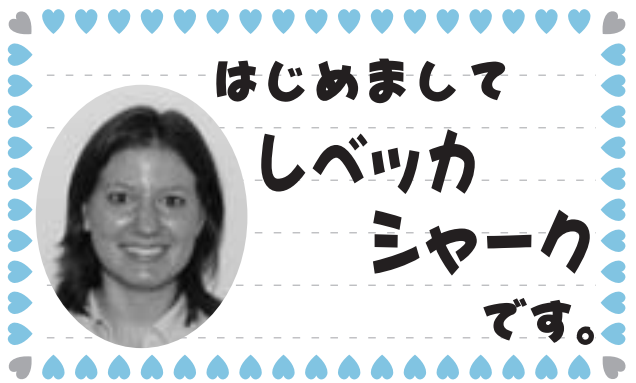 はじめまして
レベッカ
シャーク
です。